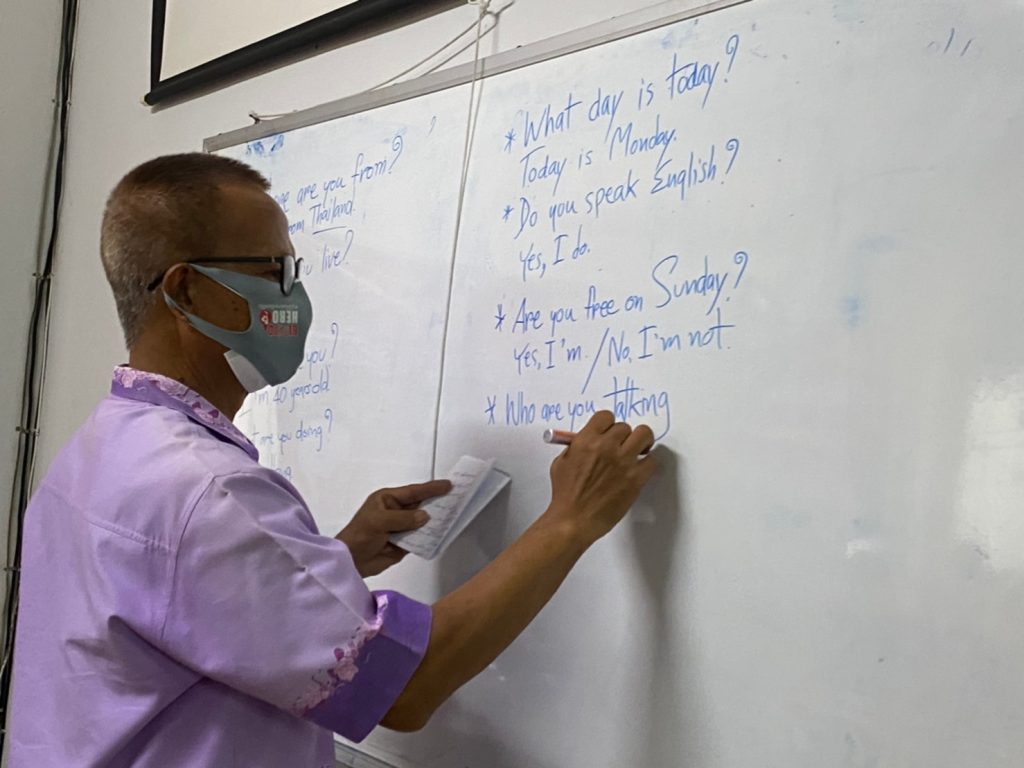 are you from?
from Thailand.
you live?
you?
I'm 40 years old
are you doing?
* What day is today?
Today is Monday.
* Do you speak English?
Yes, I do.
* Are you free on Sunday?
Yes, I'm. / No, I'm not.
* Who are you talking
HERO